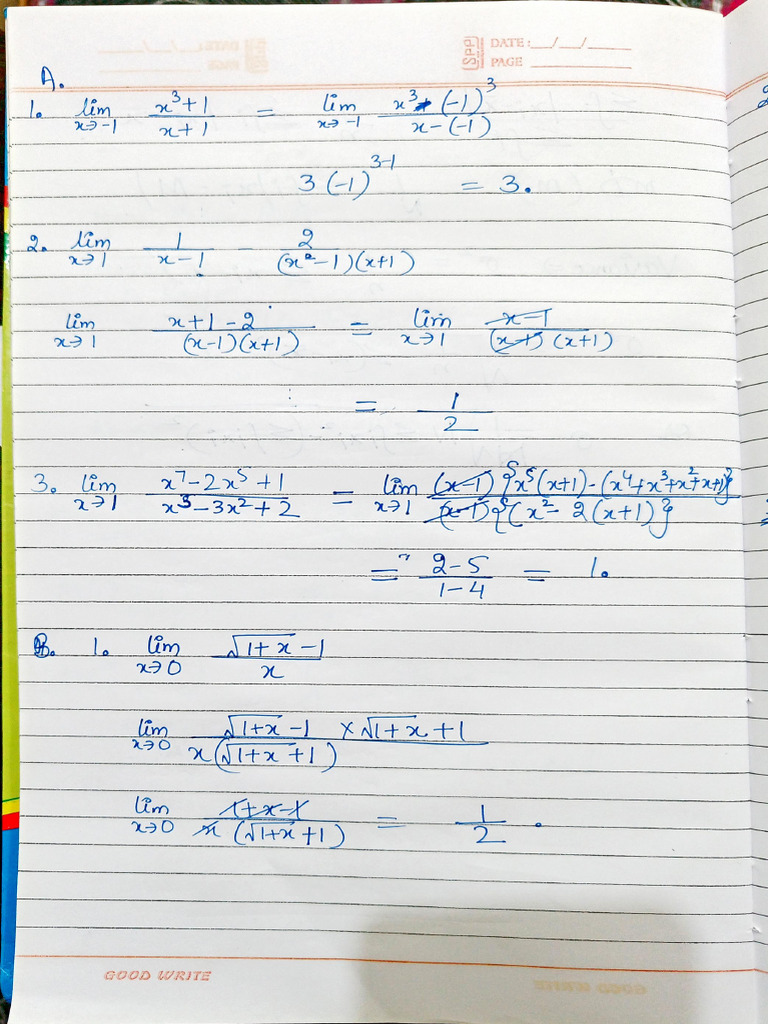 DATE: __/__/____
SPP PAGE
A.
1. lim x→-1 (x³+1)/(x+1) = lim x→-1 (x³-(-1)³)/(x-(-1))
3(-1)³⁻¹ = 3.
2. lim x→1 1/(x-1) - 2/((x²-1)(x+1))
lim x→1 (x+1-2)/((x-1)(x+1)) = lim x→1 (x-1)/((x-1)(x+1))
= 1/2
3. lim x→1 (x⁷-2x⁵+1)/(x³-3x²+2) = lim x→1 (x-1){x⁵(x+1)-(x⁴+x³+x²+x+1)}/(x-1){(x²-2(x+1)}
= (2-5)/(1-4) = 1.
B. 1. lim x→0 (√(1+x) -1)/x
lim x→0 (√(1+x) -1 × √(1+x) +1)/(x(√(1+x) +1))
lim x→0 (1+x-1)/(x(√(1+x) +1)) = 1/2.
GOOD WRITE